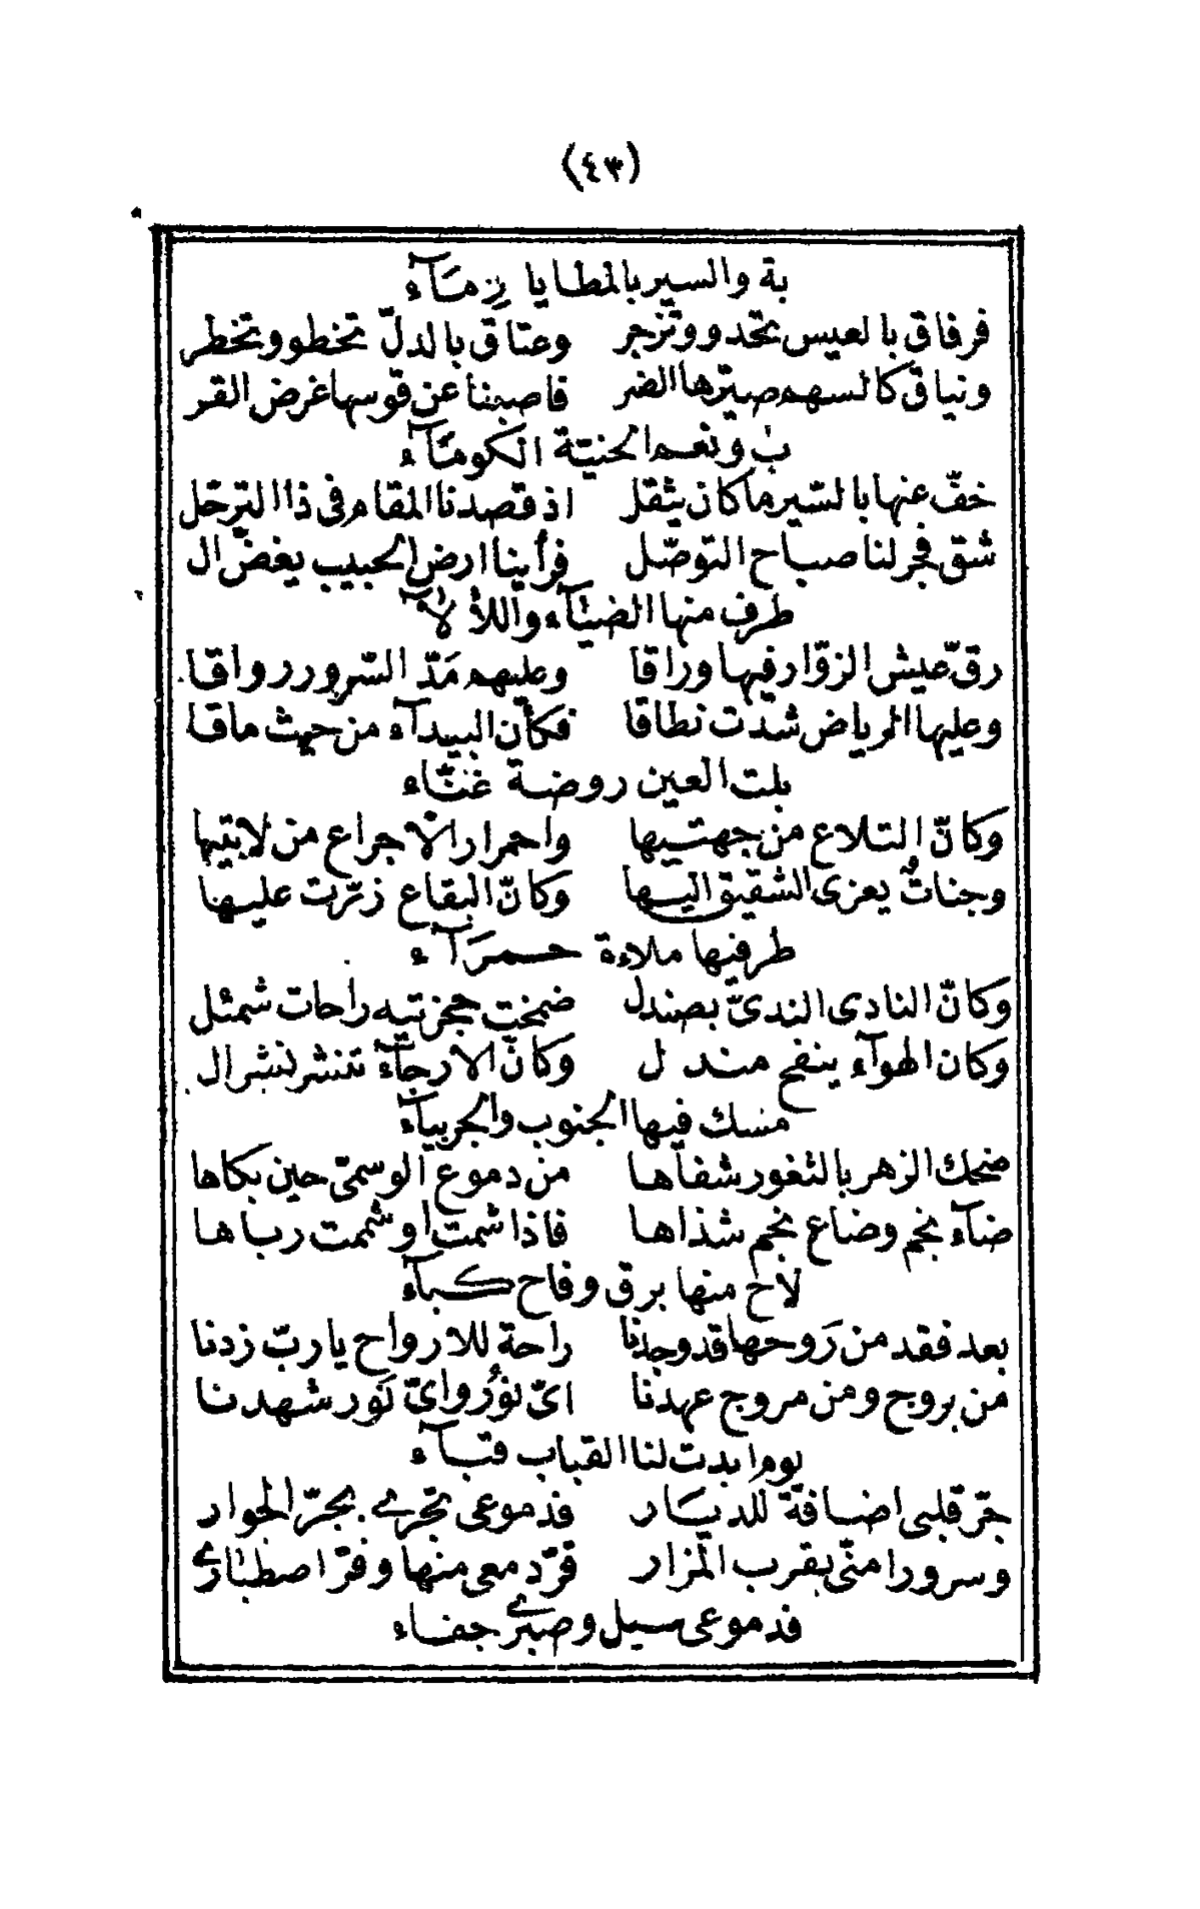 (٤٣)
بة والسير بالمطايا رماء
فرفاق بالعيس تحدو وتزجر وعتاق بالدلّ تخطو وتخطر
ونياق كالسهم صيّرها الضر فاصبنا عن قوسها غرض القر
ب ونعم الحنيّة الكومآء
خفّ عنها بالسّير ما كان يثقل اذ قصدنا المقام فى ذا الترحّل
شقّ فجر لنا صباح التوصّل فرأينا ارض الحبيب يغضّ ال
طرف منها الضيآء واللألآء
رقّ عيش الزوّار فيها وراقا وعليهم مَدّ السّرور رواقا
وعليها الرياض شدّت نطاقا فكأنّ البيدآء من حيث ماقا
بلت العين روضة غنّاء
وكانّ التلاع من جهتيها واحمرار الأجراع من لابتيها
وجنات يعزى الشقيق اليها وكانّ البقاع ذرّت عليها
طرفيها ملاءة حمرَآء
وكانّ النادى الندىّ بصندل ضمخت حجزتيه راحات شمئل
وكان الهوآء ينفح مندل وكانّ الارجآء تنشر نشر ال
مسك فيها الجنوب والجربيآء
ضحك الزهر بالثغور شفاها من دموع الوسمىّ حين بكاها
ضآء نجم وضاع نجم شذاها فاذا شمت او شممت رباها
لاح منها برق وفاح كبآء
بعد فقد من رَوحها قد وجدنا راحة للارواح يا ربّ زدنا
من بروج ومن مروج عهدنا اىّ نُوْر واىّ نَور شهدنا
يوم ابدت لنا القباب قبآء
جرّ قلبى اضافة للديَار فدموعى تجرے بجرّ الجوار
وسرورا منّى بقرب المزار قرّ دمعى منها وفرّ اصطبارے
فدموعى سيل وصبرے جفاء